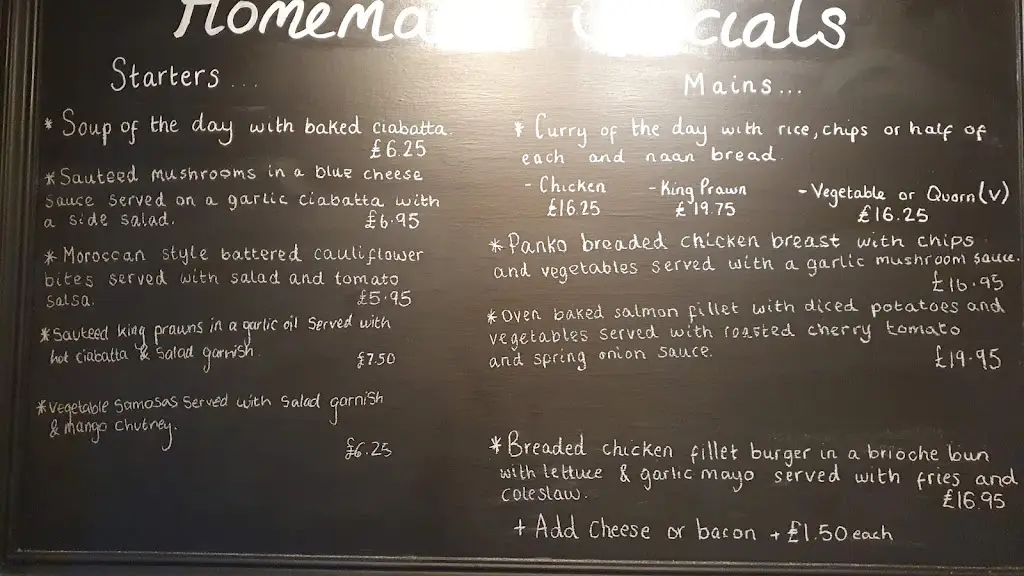 Homemade Specials
Starters ...
* Soup of the day with baked ciabatta.
£6.25
* Sauteed mushrooms in a blue cheese
sauce served on a garlic ciabatta with
a side salad.
£6.95
* Moroccan style battered cauliflower
bites served with salad and tomato
salsa.
£5.95
* Sauteed king prawns in a garlic oil served with
hot ciabatta & salad garnish
£7.50
* Vegetable samosas served with salad garnish
& mango chutney.
£6.25
Mains...
* Curry of the day with rice, chips or half of
each and naan bread.
- Chicken - King Prawn - Vegetable or Quorn (v)
£16.25 £19.75 £16.25
* Panko breaded chicken breast with chips
and vegetables served with a garlic mushroom sauce.
£16.95
* Oven baked salmon fillet with diced potatoes and
vegetables served with roasted cherry tomato
and spring onion sauce.
£19.95
* Breaded chicken fillet burger in a brioche bun
with lettuce & garlic mayo served with fries and
coleslaw.
£16.95
+ Add cheese or bacon + £1.50 each